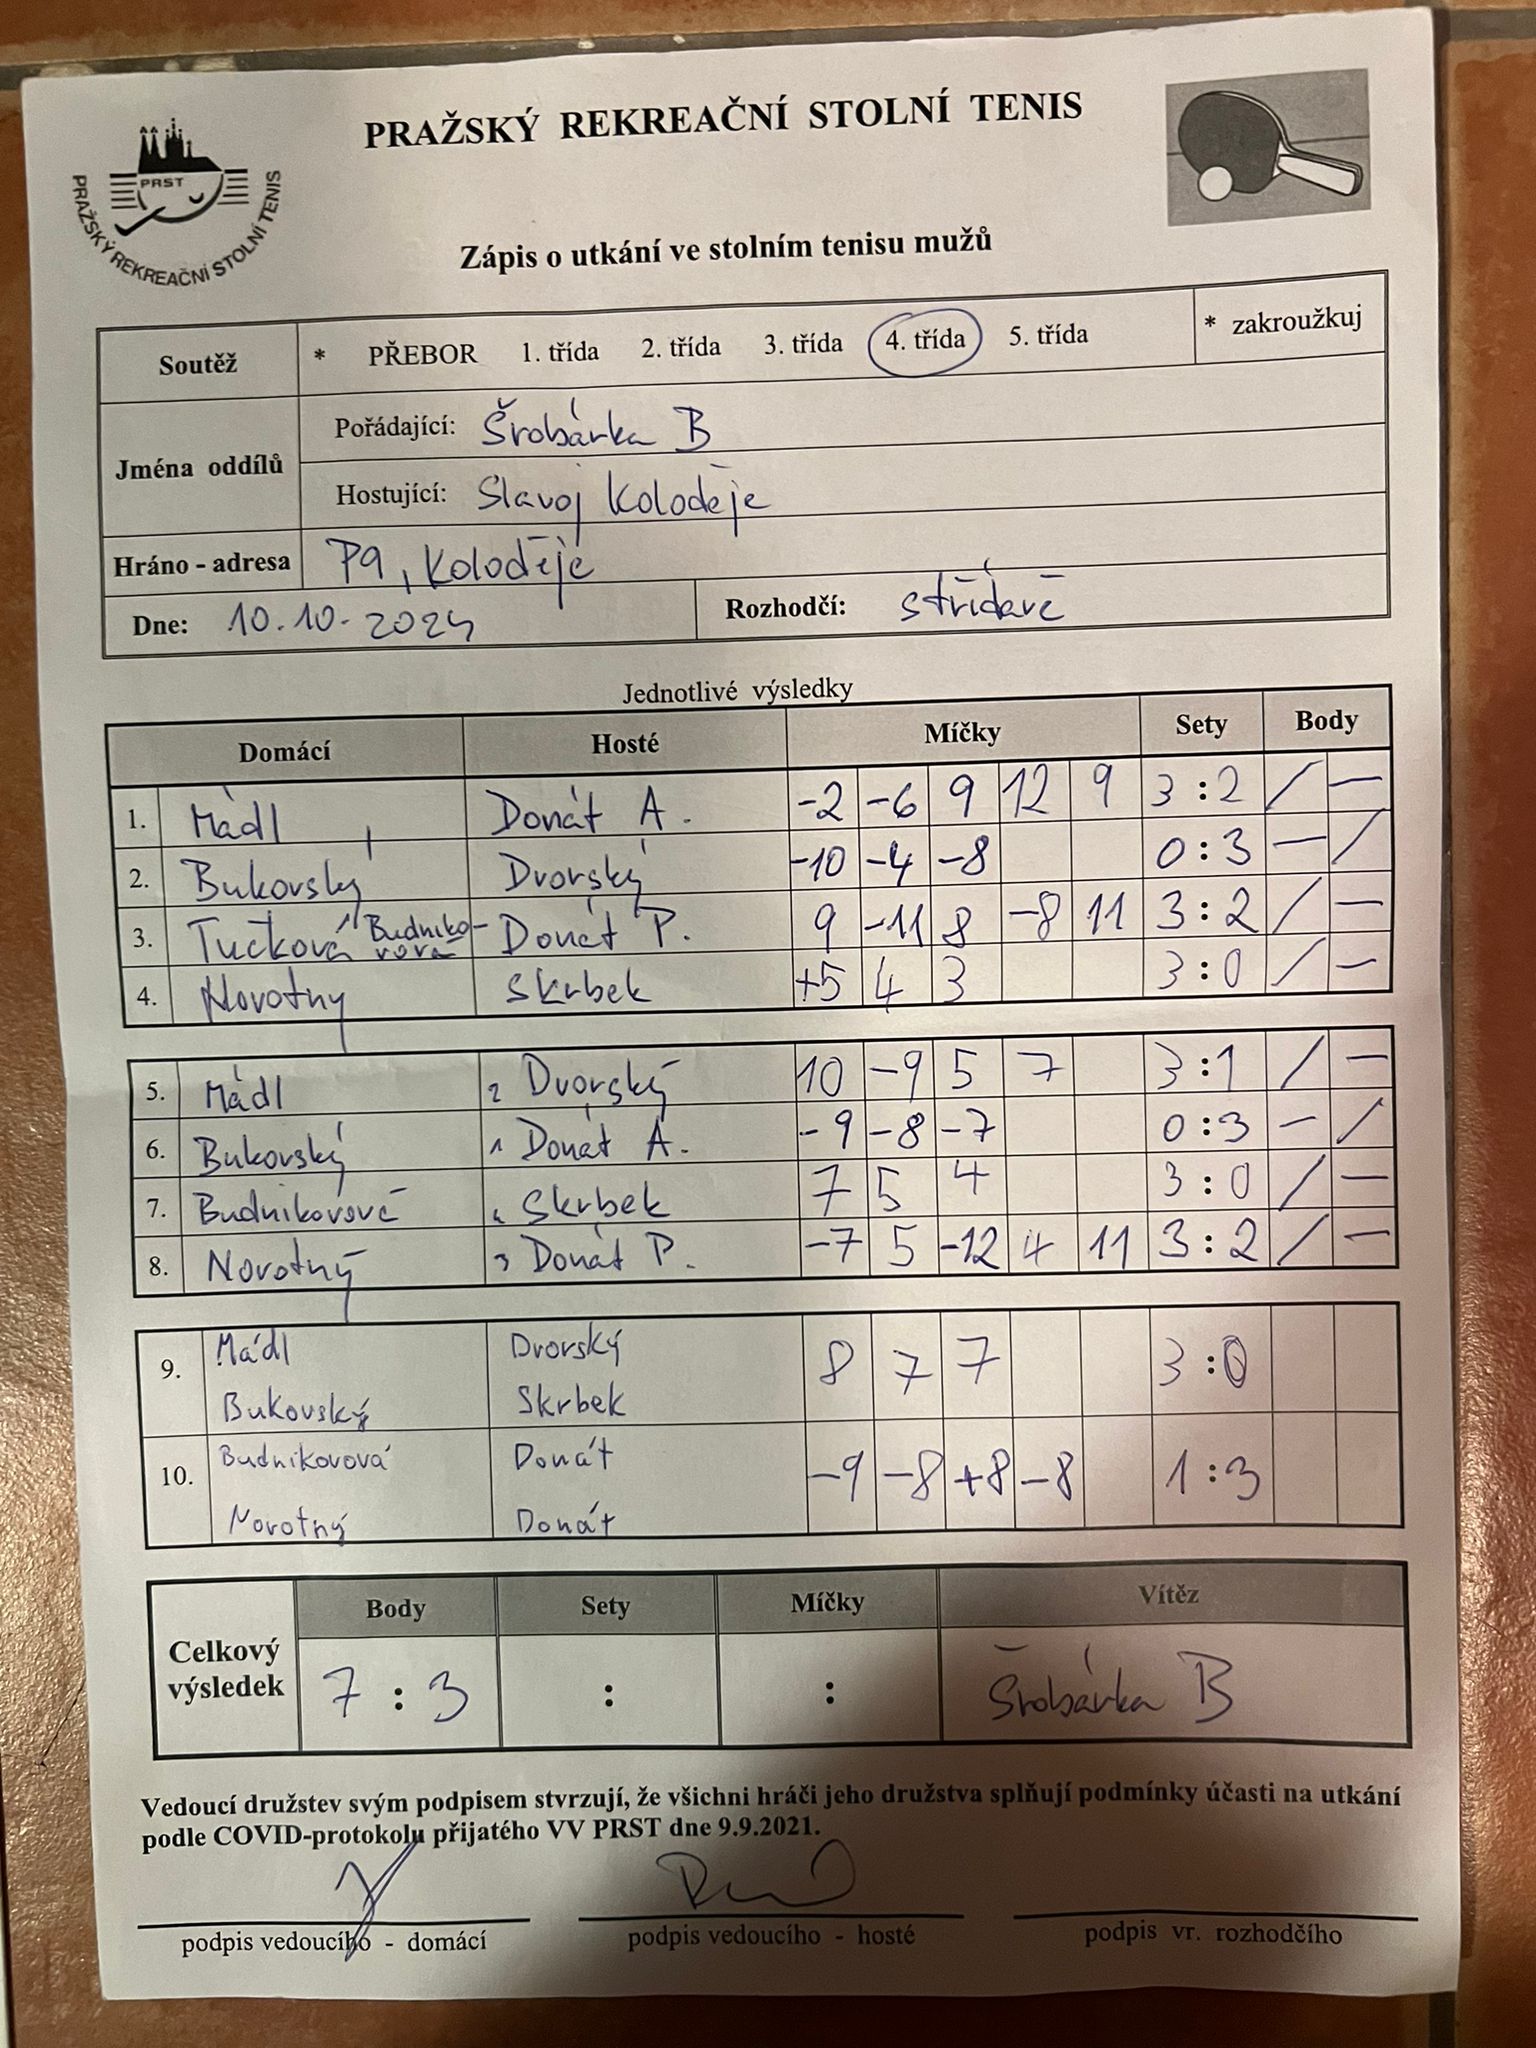 PRAŽSKÝ REKREAČNÍ STOLNÍ TENIS
PRST
PRAŽSKÝ REKREAČNÍ STOLNÍ TENIS
Zápis o utkání ve stolním tenisu mužů
Soutěž * PŘEBOR 1. třída 2. třída 3. třída 4. třída 5. třída * zakroužkuj
Jména oddílů
Pořádající: Šrobárka B
Hostující: Slavoj Koloděje
Hráno - adresa P9, Koloděje
Dne: 10.10.2024 Rozhodčí: střídavě
Jednotlivé výsledky
Domácí Hosté Míčky Sety Body
1. Mádl Donát A. -2 -6 9 12 9 3 : 2 / —
2. Bukovský Dvorský -10 -4 -8 0 : 3 — /
3. Tučková / Budnikovová Donát P. 9 -11 8 -8 11 3 : 2 / —
4. Novotný Skrbek +5 4 3 3 : 0 / —
5. Mádl 2 Dvorský 10 -9 5 7 3 : 1 / —
6. Bukovský 1 Donát A. -9 -8 -7 0 : 3 — /
7. Budnikovová 4 Skrbek 7 5 4 3 : 0 / —
8. Novotný 3 Donát P. -7 5 -12 4 11 3 : 2 / —
9. Mádl Dvorský 8 7 7 3 : 0
Bukovský Skrbek
10. Budnikovová Donát -9 -8 +8 -8 1 : 3
Novotný Donát
Body Sety Míčky Vítěz
Celkový výsledek 7 : 3 : : Šrobárka B
Vedoucí družstev svým podpisem stvrzují, že všichni hráči jeho družstva splňují podmínky účasti na utkání
podle COVID-protokolu přijatého VV PRST dne 9.9.2021.
podpis vedoucího - domácí podpis vedoucího - hosté podpis vr. rozhodčího